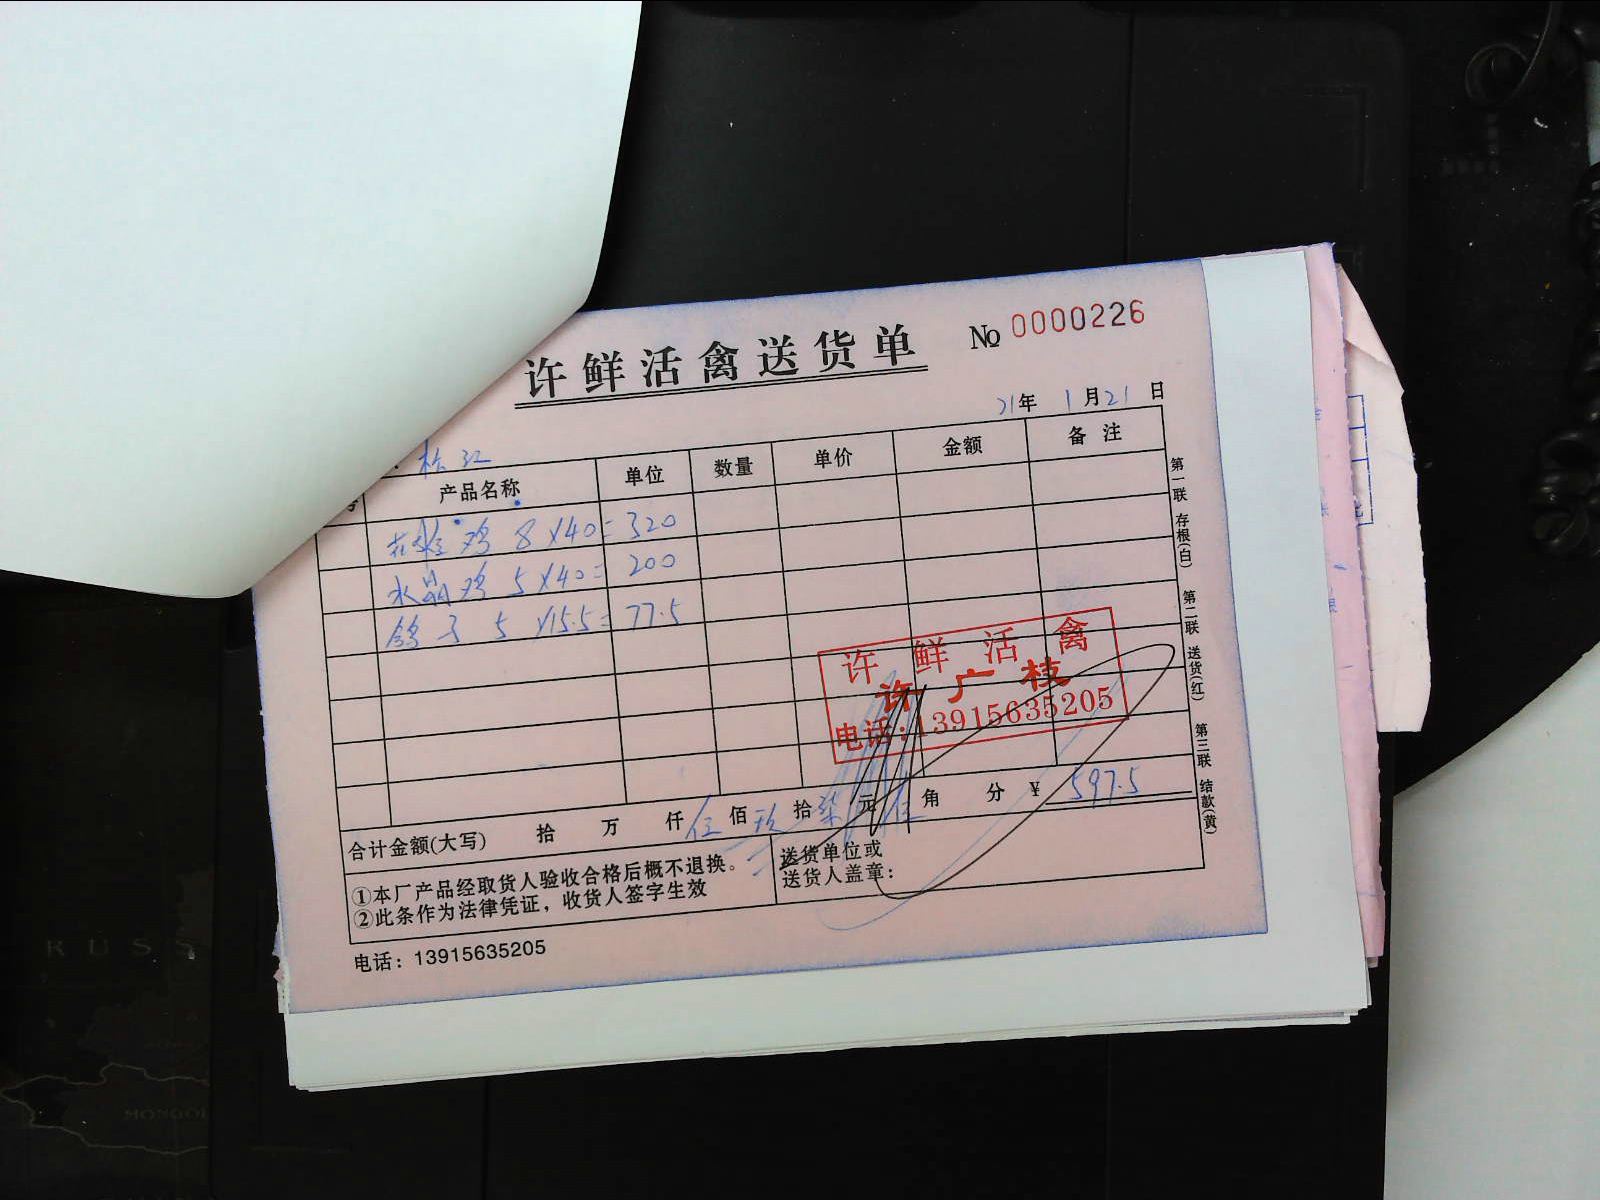 许鲜活禽送货单 No 0000226
21年 1月21日
产品名称 单位 数量 单价 金额 备注
鸡 8×40=320
水晶鸡 5×40=200
鸽子 5×15.5=77.5
许鲜活禽
许广枝
电话:13915635205
合计金额(大写) 拾 万 仟伍佰玖拾柒元伍角 分 ¥ 597.5
①本厂产品经取货人验收合格后概不退换。
②此条作为法律凭证，收货人签字生效
送货单位或
送货人盖章：
电话：13915635205
第一联 存根(白) 第二联 送货(红) 第三联 结款(黄)
RUSS
MONGOL